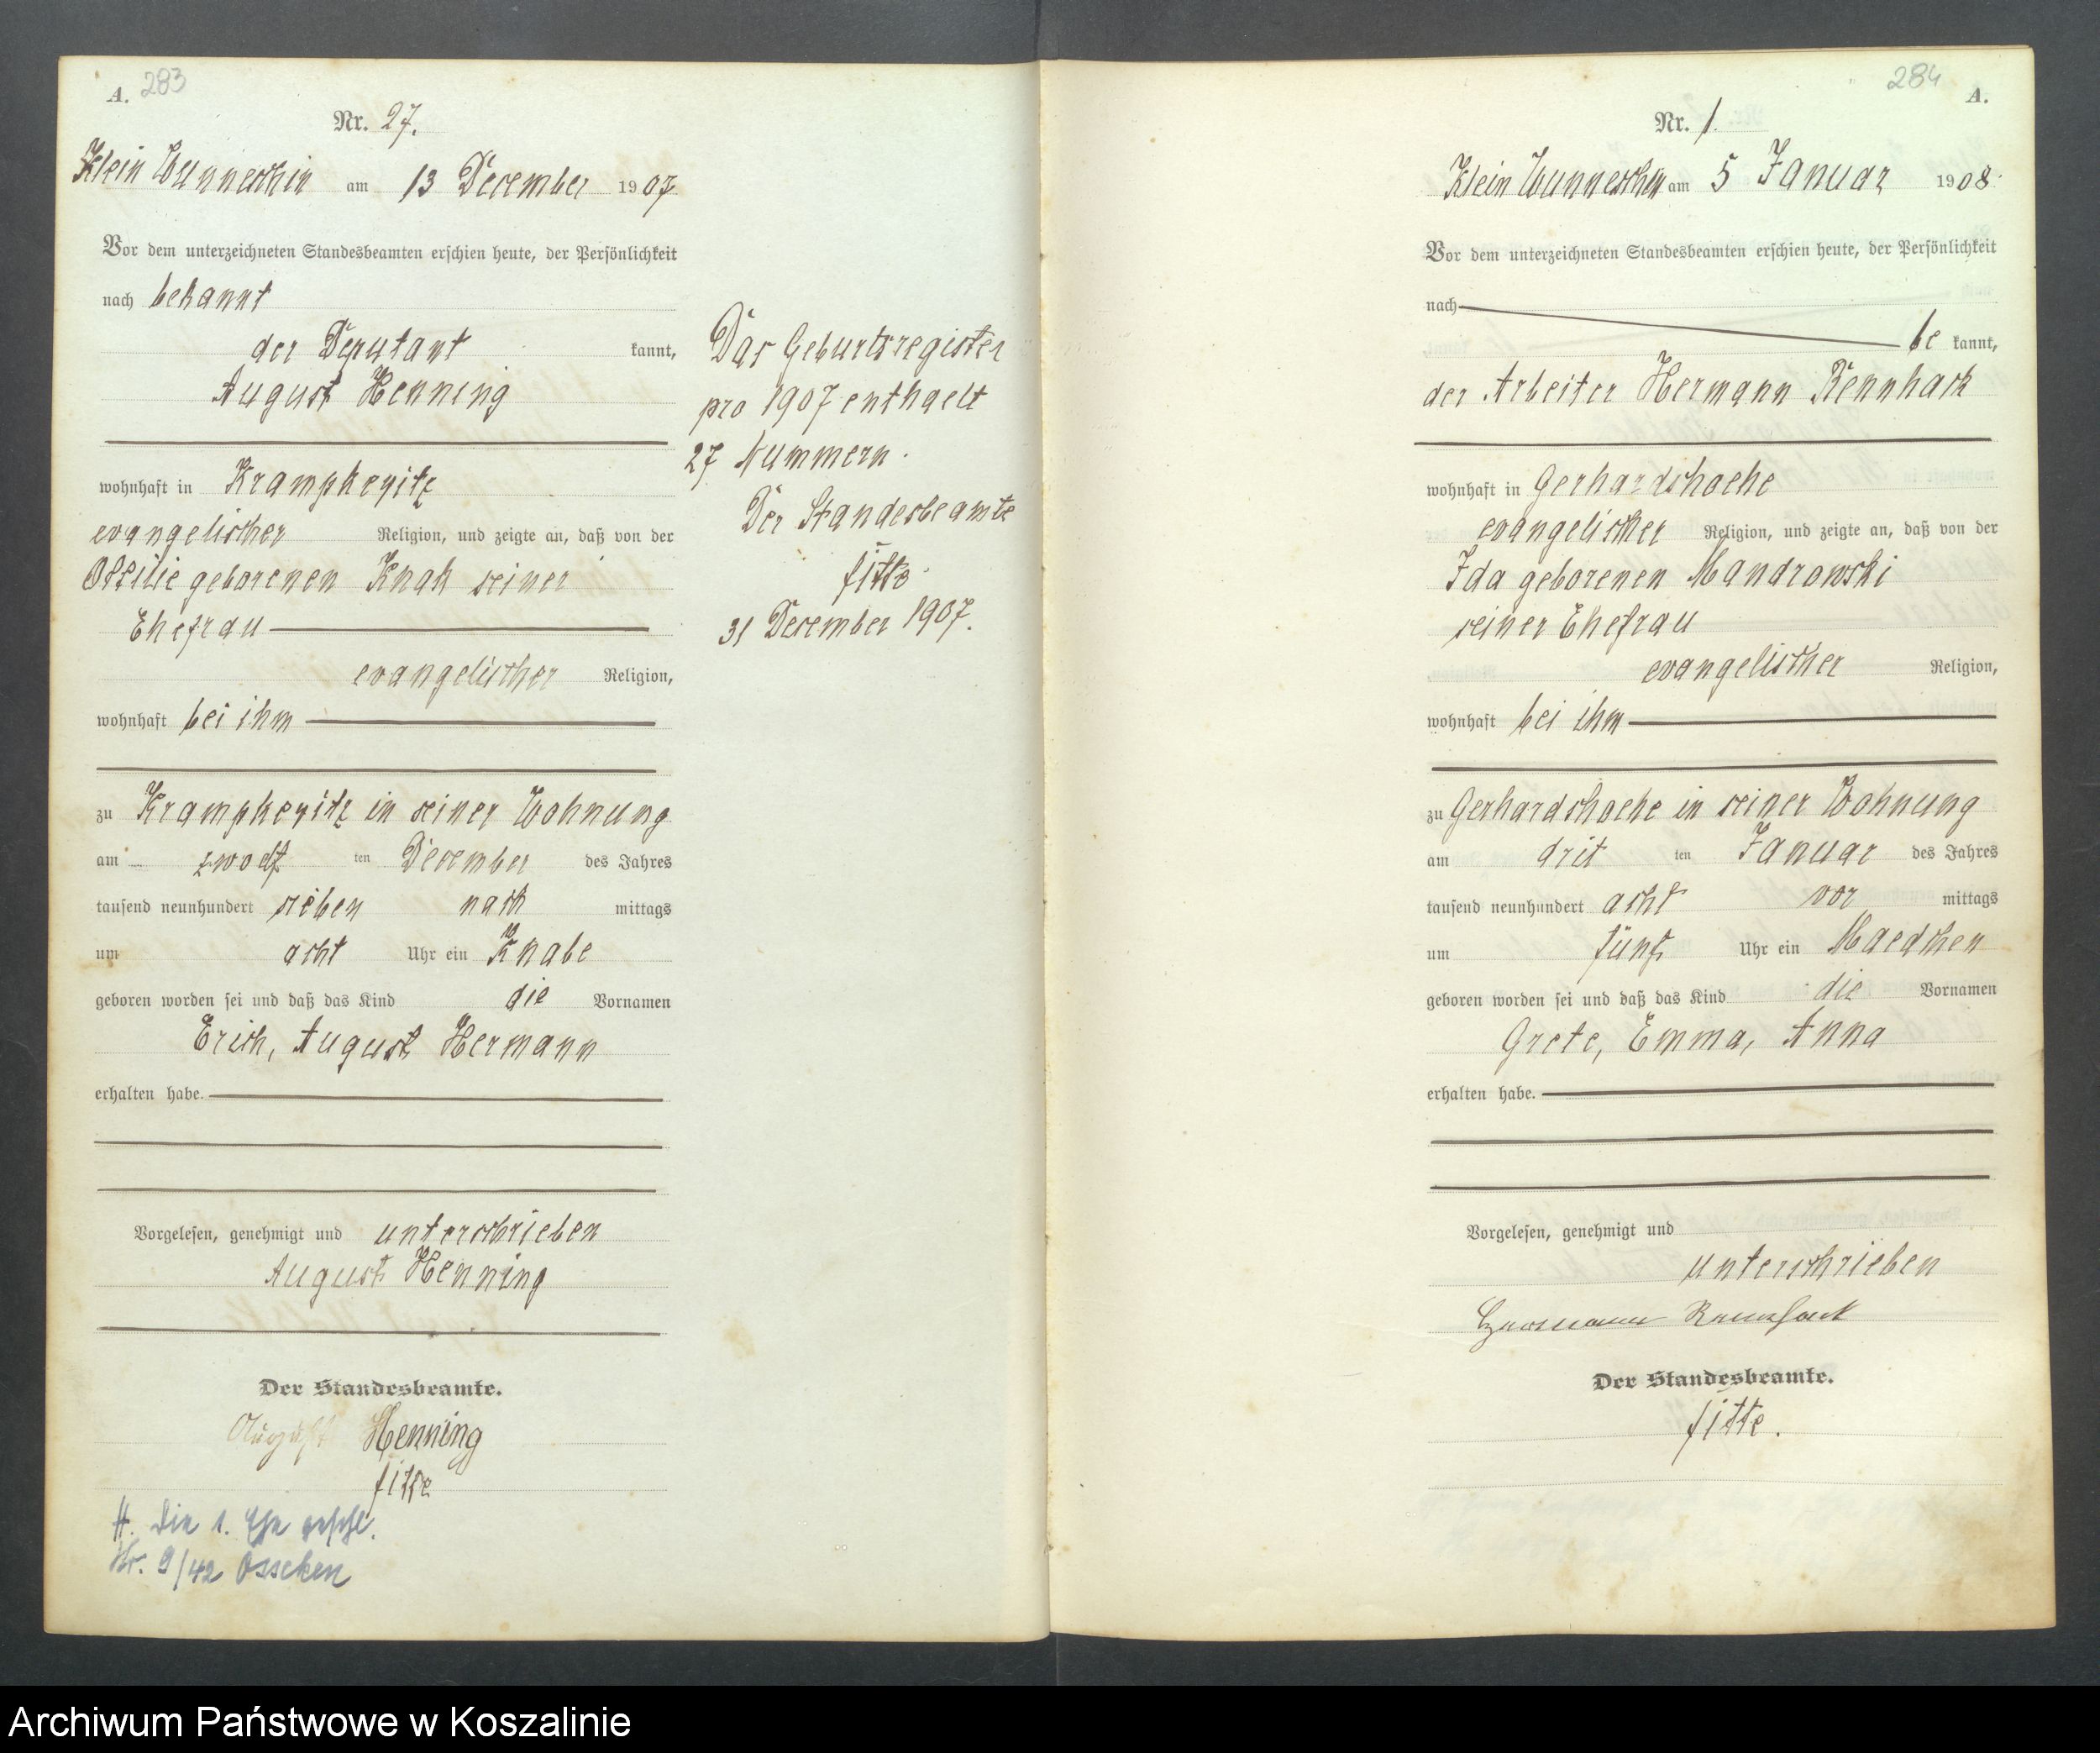 A. 283
Nr. 27.
Klein Wunneschin am 13 December 1907
Vor dem unterzeichneten Standesbeamten erschien heute, der Persönlichkeit
nach bekannt
der Deputant kannt,
August Henning
wohnhaft in Krampkeyitz
evangelischer Religion, und zeigte an, daß von der
Ottilie geborenen Knak seiner
Ehefrau
evangelischer Religion,
wohnhaft bei ihm
zu Krampkeyitz in seiner Wohnung
am zwoelf ten December des Jahres
tausend neunhundert sieben nach mittags
um acht Uhr ein Knabe
geboren worden sei und daß das Kind die Vornamen
Erich, August Hermann
erhalten habe.
Vorgelesen, genehmigt und unterschrieben
August Henning
Der Standesbeamte.
August Henning
fitte
H. die 1. Ehe geschl.
Nr. 9/42 Ossecken
Das Geburtsregister
pro 1907 enthaelt
27 Nummern.
Der Standesbeamte
fitte
31 December 1907.
284 A.
Nr. 1.
Klein Wunneschin am 5 Januar 1908
Vor dem unterzeichneten Standesbeamten erschien heute, der Persönlichkeit
nach
be kannt,
der Arbeiter Hermann Rennhack
wohnhaft in Gerhardshoehe
evangelischer Religion, und zeigte an, daß von der
Ida geborenen Mandrowski
seiner Ehefrau
evangelischer Religion,
wohnhaft bei ihm
zu Gerhardshoehe in seiner Wohnung
am drit ten Januar des Jahres
tausend neunhundert acht vor mittags
um fünf Uhr ein Maedchen
geboren worden sei und daß das Kind die Vornamen
Grete, Emma, Anna
erhalten habe.
Vorgelesen, genehmigt und
unterschrieben
Hermann Rennhack
Der Standesbeamte.
fitte.
Archiwum Państwowe w Koszalinie